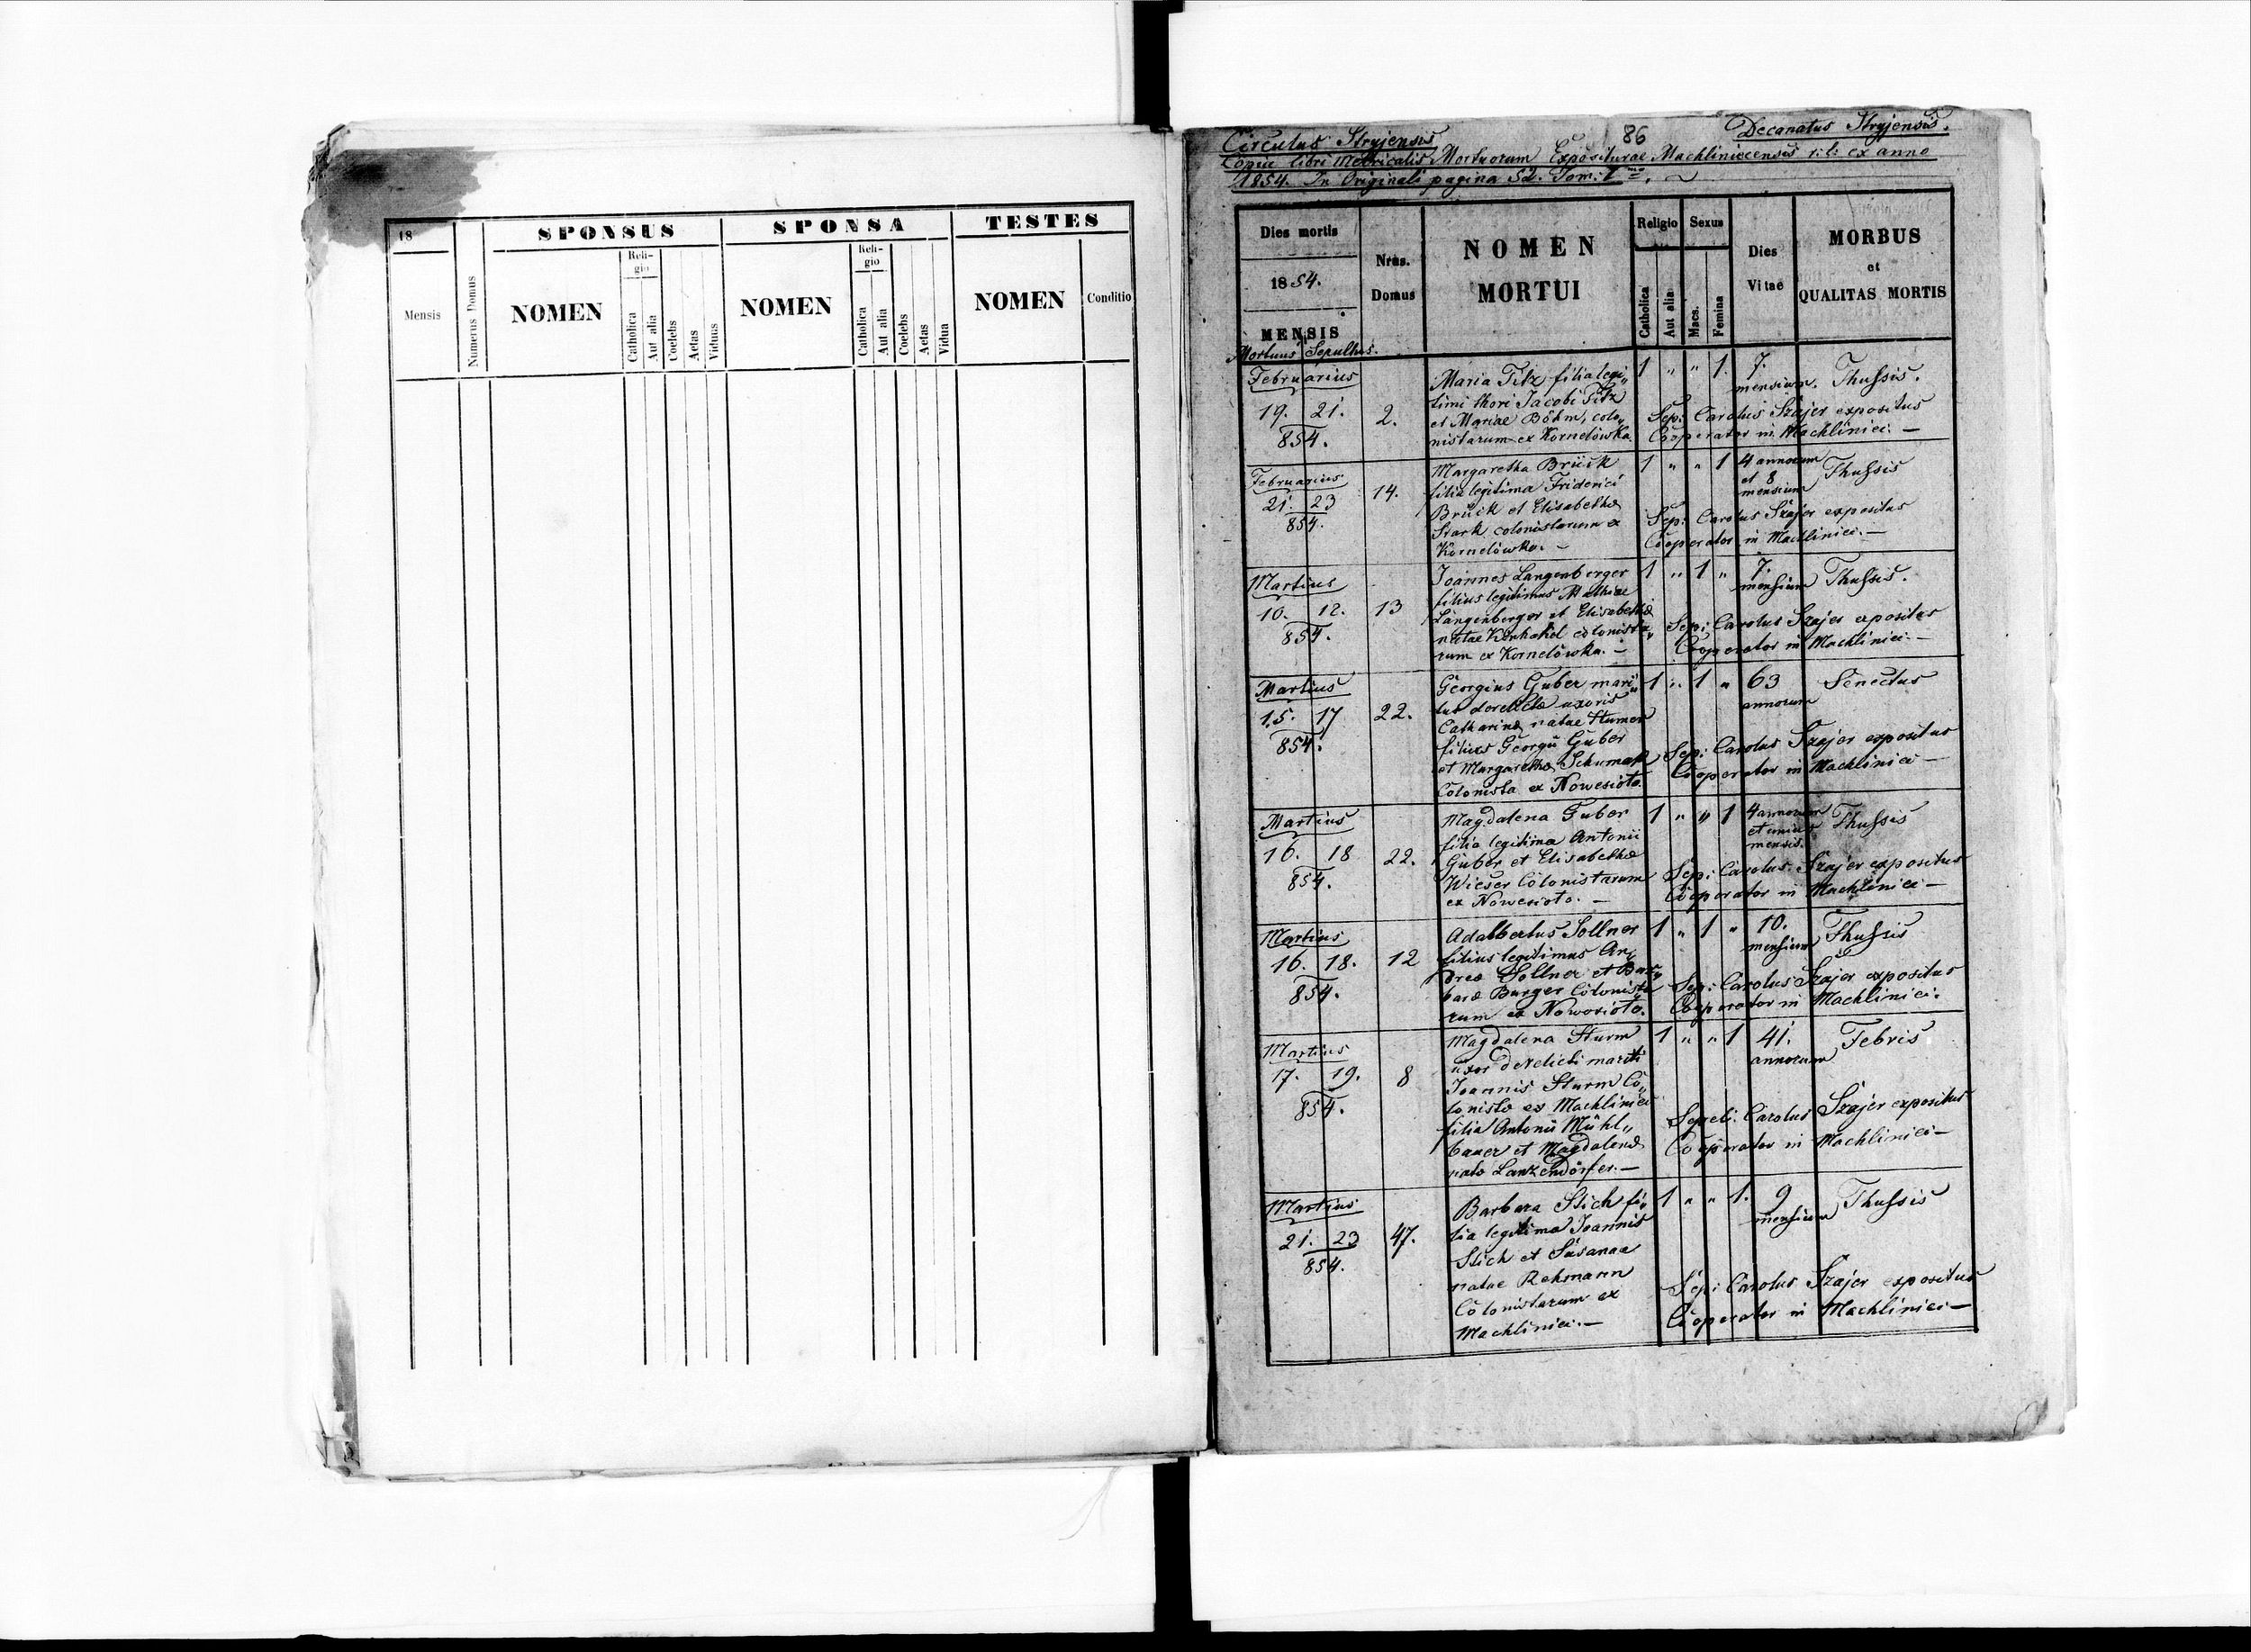 18
SPONSUS
SPONSA
TESTES
Mensis
Numerus Domus
NOMEN
Reli-
gio
Catholica
Aut alia
Coelebs
Aetas
Viduus
NOMEN
Reli-
gio
Catholica
Aut alia
Coelebs
Aetas
Vidua
NOMEN
Conditio
Circulus Stryjensis 86 Decanatus Stryjensis.
Copia libri Metricalis Mortuorum Expositurae Machliniecensis r: l: ex anno
1854. In Originali pagina 52. Tom: I mo.
Dies mortis
1854.
MENSIS
Mortuus Sepultus.
Nrus.
Domus
NOMEN
MORTUI
Religio
Catholica
Aut alia
Sexus
Masc.
Femina
Dies
Vitae
MORBUS
et
QUALITAS MORTIS
Februarius
19. 21.
854.
2.
Maria Titz filia legi„
timi thori Jacobi Titz
et Mariae Böhm, colo„
nistarum ex Kornelówka
1 „ „ 1.
7.
mensium.
Thussis.
Sep: Carolus Szajer expositus
Cooperator in Machliniec. —
Februarius
21. 23
854.
14.
Margaretha Brück
filia legitima Friderici
Brück et Elisabethae
Stark colonistarum ex
Kornelówka. —
1 „ „ 1
4 annorum
et 8
mensium
Thussis
Sep: Carolus Szajer expositus
Cooperator in Machliniec. —
Martius
10. 12.
854.
13
Joannes Langenberger
filius legitimus Mathiae
Langenberger et Elisabethae
natae colonista„
rum ex Kornelówka. —
1 „ 1 „
7.
mensium
Thussis.
Sep: Carolus Szajer expositus
Cooperator in Machliniec. —
Martius
15. 17
854.
22.
Georgius Guber mari„
tus derelictae uxoris
Catharinae natae
filius Georgii Guber
et Margarethae
Colonista ex Nowesioło.
1 „ 1 „
63
annorum
Senectus
Sep: Carolus Szajer expositus
Cooperator in Machliniec —
Martius
16. 18
854.
22.
Magdalena Guber
filia legitima Antonii
Guber et Elisabethae
Wieser Colonistarum
ex Nowesioło. —
1 „ „ 1
4 annorum
et unius
mensis.
Thussis
Sep: Carolus Szajer expositus
Cooperator in Machliniec —
Martius
16. 18.
854.
12
Adalbertus Sollner
filius legitimus An„
dreae Sollner et Bar„
barae Burger Colonista„
rum ex Nowosioło.
1 „ 1 „
10.
mensium
Thussis
Sep: Carolus Szajer expositus
Cooperator in Machliniec.
Martius
17. 19.
854.
8
Magdalena Sturm
uxor derelicti mariti
Joannis Sturm Co„
lonistae ex Machliniec
filia Antonii Mühl„
bauer et Magdalenae
natae Lanzendörfer. —
1 „ „ 1
41.
annorum
Febris
Sepeli: Carolus Szajer expositus
Cooperator in Machliniec —
Martius
21. 23
854.
47.
Barbara Stich fi„
lia legitima Joannis
Stich et Susanae
natae Rehmann
Colonistarum ex
Machliniec. —
1 „ „ 1.
9
mensium
Thussis
Sep: Carolus Szajer expositus
Cooperator in Machliniec —